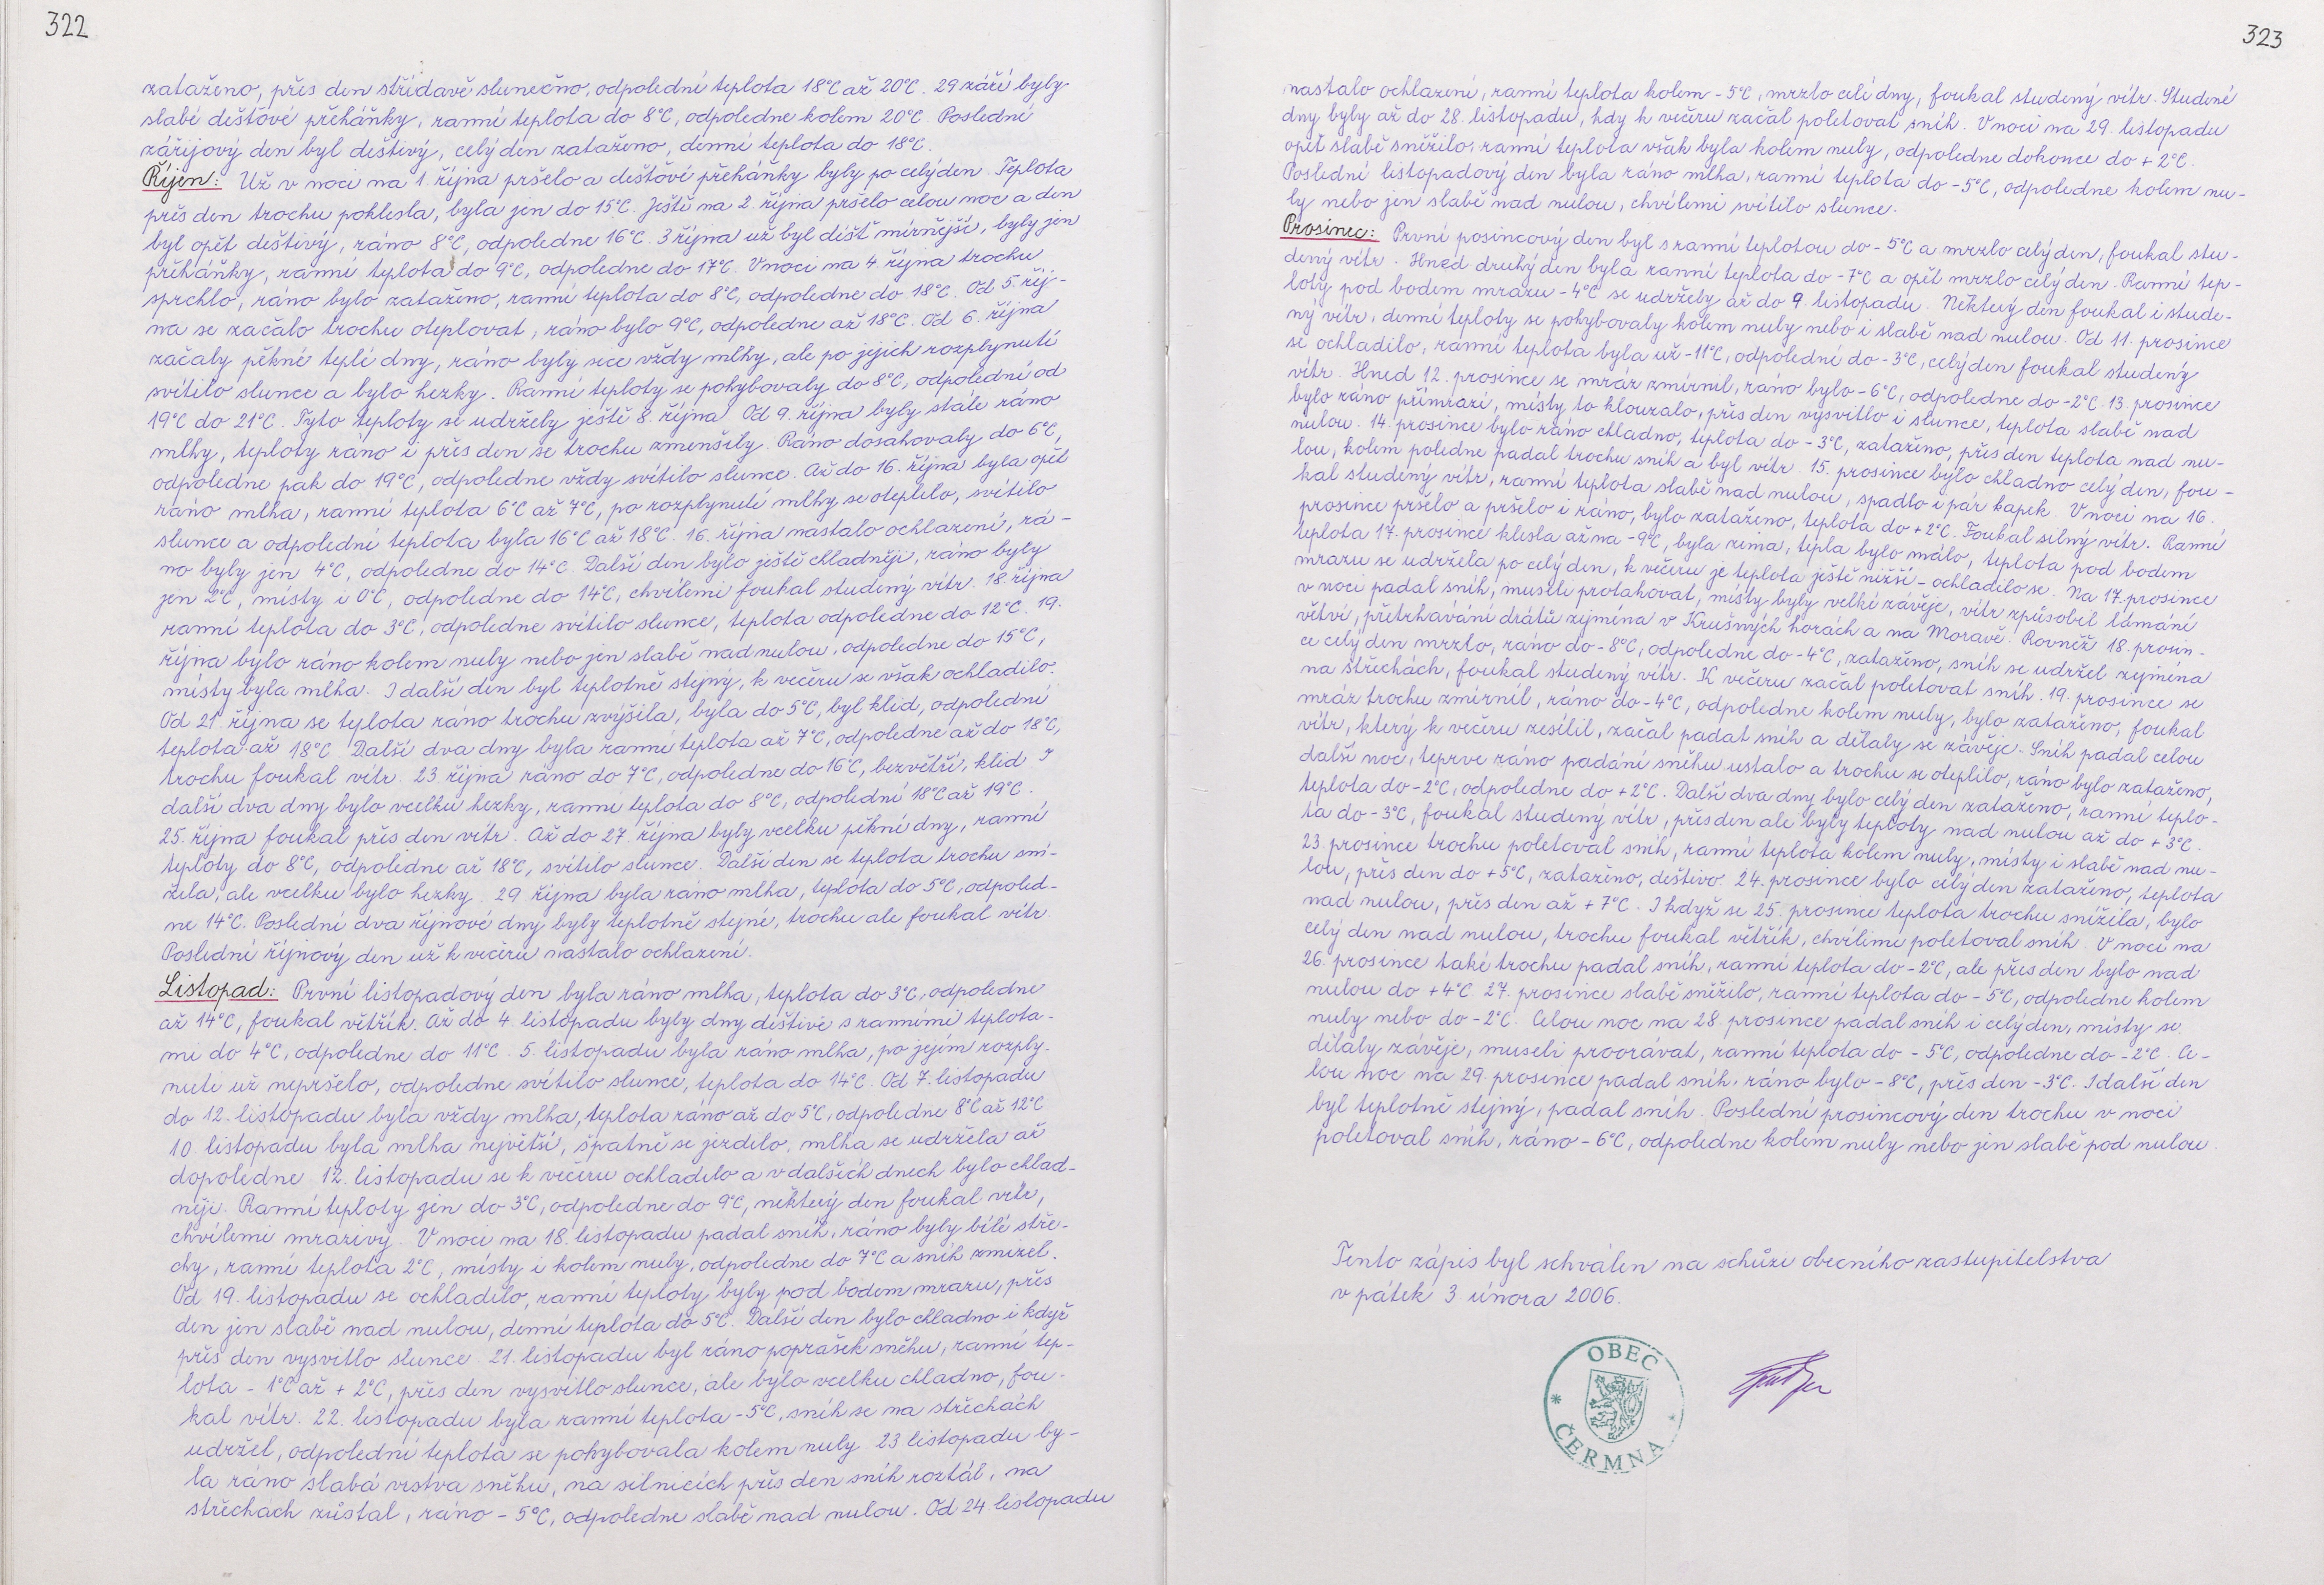 322
zataženo, přes den střídavě slunečno, odpolední teplota 18°C až 20°C. 29 září byly
slabé dešťové přeháňky, ranní teplota do 8°C, odpoledne kolem 20°C. Poslední
zářijový den byl deštivý, celý den zataženo, denní teplota do 18°C.
Říjen: Už v noci na 1. října pršelo a dešťové přeháňky byly po celý den. Teplota
přes den trochu poklesla, byla jen do 15°C. Ještě na 2. října pršelo celou noc a den
byl opět deštivý, ráno 8°C, odpoledne 16°C. 3 října už byl déšť mírnější, byly jen
přeháňky, ranní teplota do 9°C, odpoledne do 17°C. V noci na 4. října trochu
sprchlo, ráno bylo zataženo, ranní teplota do 8°C, odpoledne do 18°C. Od 5. říj-
na se začalo trochu oteplovat, ráno bylo 9°C, odpoledne až 18°C. Od 6. října
začaly pěkné teplé dny, ráno byly sice vždy mlhy, ale po jejich rozplynutí
svítilo slunce a bylo hezky. Ranní teploty se pohybovaly do 8°C, odpolední od
19°C do 21°C. Tyto teploty se udržely ještě 8. října. Od 9. října byly stále ráno
mlhy, teploty ráno i přes den se trochu zmenšily. Ráno dosahovaly do 6°C,
odpoledne pak do 19°C, odpoledne vždy svítilo slunce. Až do 16. října byla opět
ráno mlha, ranní teplota 6°C až 7°C, po rozplynutí mlhy se oteplilo, svítilo
slunce a odpolední teplota byla 16°C až 18°C. 16. října nastalo ochlazení, rá-
no byly jen 4°C, odpoledne do 14°C. Další den bylo ještě chladněji, ráno byly
jen 2°C, místy i 0°C, odpoledne do 14°C, chvílemi foukal studený vítr. 18 října
ranní teplota do 3°C, odpoledne svítilo slunce, teplota odpoledne do 12°C. 19.
října bylo ráno kolem nuly nebo jen slabě nad nulou, odpoledne do 15°C,
místy byla mlha. I další den byl teplotně stejný, k večeru se však ochladilo.
Od 21. října se teplota ráno trochu zvýšila, byla do 5°C, byl klid, odpolední
teplota až 18°C. Další dva dny byla ranní teplota až 7°C, odpoledne až do 18°C,
trochu foukal vítr. 23 října ráno do 7°C, odpoledne do 16°C, bezvětří, klid I
další dva dny bylo vcelku hezky, ranní teplota do 8°C, odpolední 18°C až 19°C.
25. října foukal přes den vítr. Až do 27 října byly vcelku pěkné dny, ranní
teploty do 8°C, odpoledne až 18°C, svítilo slunce. Další den se teplota trochu sní-
žela, ale vcelku bylo hezky. 29 října byla ráno mlha, teplota do 5°C, odpoled-
ne 14°C. Poslední dva říjnové dny byly teplotně stejné, trochu ale foukal vítr.
Poslední říjnový den už k večeru nastalo ochlazení.
Listopad: První listopadový den byla ráno mlha, teplota do 3°C, odpoledne
až 14°C, foukal větřík. Až do 4. listopadu byly dny deštivé s ranními teplota-
mi do 4°C, odpoledne do 11°C. 5. listopadu byla ráno mlha, po jejím rozply-
nutí už nepršelo, odpoledne svítilo slunce, teplota do 14°C. Od 7. listopadu
do 12. listopadu byla vždy mlha, teplota ráno až do 5°C, odpoledne 8°C až 12°C
10 listopadu byla mlha největší, špatně se jezdilo, mlha se udržela až
dopoledne. 12. listopadu se k večeru ochladilo a v dalších dnech bylo chlad-
něji. Ranní teploty jen do 3°C, odpoledne do 9°C, některý den foukal vítr,
chvílemi mrazivý. V noci na 18. listopadu padal sníh, ráno byly bílé stře-
chy, ranní teplota 2°C, místy i kolem nuly, odpoledne do 7°C a sníh zmizel.
Od 19. listopadu se ochladilo, ranní teploty byly pod bodem mrazu, přes
den jen slabě nad nulou, denní teplota do 5°C. Další den bylo chladno i když
přes den vysvitlo slunce. 21. listopadu byl ráno poprašek sněhu, ranní tep-
lota - 1°C až + 2°C, přes den vysvitlo slunce, ale bylo vcelku chladno, fou-
kal vítr. 22. listopadu byla ranní teplota -5°C, sníh se na střechách
udržel, odpolední teplota se pohybovala kolem nuly. 23 listopadu by-
la ráno slabá vrstva sněhu, na silnicích přes den sníh roztál, na
střechach zůstal, ráno - 5°C, odpoledne slabě nad nulou. Od 24 listopadu
323
nastalo ochlazení, ranní teplota kolem -5°C, mrzlo celé dny, foukal studený vítr. Studené
dny byly až do 28. listopadu, kdy k večeru začal poletovat sníh. V noci na 29. listopadu
opět slabě sněžilo, ranní teplota však byla kolem nuly, odpoledne dokonce do +2°C.
Poslední listopadový den byla ráno mlha, ranní teplota do -5°C, odpoledne kolem nu-
ly nebo jen slabě nad nulou, chvílemi svítilo slunce.
Prosinec: První posincový den byl s ranní teplotou do -5°C a mrzlo celý den, foukal stu-
dený vítr. Hned druhý den byla ranní teplota do -7°C a opět mrzlo celý den. Ranní tep-
loty pod bodem mrazu -4°C se udržely až do 9. listopadu. Některý den foukal i stude-
ný vítr, denní teploty se pohybovaly kolem nuly nebo i slabě nad nulou. Od 11. prosince
se ochladilo, ranní teplota byla už -11°C, odpolední do -3°C, celý den foukal studený
vítr. Hned 12. prosince se mráz zmírnil, ráno bylo -6°C, odpoledne do -2°C. 13. prosince
bylo ráno přímrazí, místy to klouzalo, přes den vysvitlo i slunce, teplota slabě nad
nulou. 14. prosince bylo ráno chladno, teplota do -3°C, zataženo, přes den teplota nad nu-
lou, kolem poledne padal trochu sníh a byl vítr. 15. prosince bylo chladno celý den, fou-
kal studený vítr, ranní teplota slabě nad nulou, spadlo i pár kapek. V noci na 16.
prosince pršelo a pršelo i ráno, bylo zataženo, teplota do +2°C. Foukal silný vítr. Ranní
teplota 17. prosince klesla až na -9°C, byla zima, tepla bylo málo, teplota pod bodem
mrazu se udržela po celý den, k večeru je teplota ještě nižší - ochladilo se. Na 17. prosince
v noci padal sníh, museli protahovat, místy byly velké závěje, vítr způsobil lámání
větví, přetrhavání drátů zejména v Krušných horách a na Moravě. Rovněž 18. prosin-
ce celý den mrzlo, ráno do -8°C, odpoledne do -4°C, zataženo, sníh se udržel zejména
na střechách, foukal studený vítr. K večeru začal poletovat sníh. 19. prosince se
mráz trochu zmírnil, ráno do -4°C, odpoledne kolem nuly, bylo zataženo, foukal
vítr, který k večeru zesílil, začal padat sníh a dělaly se závěje. Sníh padal celou
další noc, teprve ráno padání sněhu ustalo a trochu se oteplilo, ráno bylo zataženo,
teplota do -2°C, odpoledne do +2°C. Další dva dny bylo celý den zataženo, ranní teplo-
ta do -3°C, foukal studený vítr, přes den ale byly teploty nad nulou až do +3°C.
23. prosince trochu poletoval sníh, ranní teplota kolem nuly, místy i slabě nad nu-
lou, přes den do +5°C, zataženo, deštivo. 24. prosince bylo celý den zataženo, teplota
nad nulou, přes den až +7°C. I když se 25. prosince teplota trochu snížila, bylo
celý den nad nulou, trochu foukal větřík, chvílemi poletoval sníh. V noci na
26. prosince také trochu padal sníh, ranní teplota do -2°C, ale přes den bylo nad
nulou do +4°C. 27. prosince slabě sněžilo, ranní teplota do -5°C, odpoledne kolem
nuly nebo do -2°C. Celou noc na 28. prosince padal sníh i celý den, místy se
dělaly závěje, museli prorávat, ranní teplota do -5°C, odpoledne do -2°C. Ce-
lou noc na 29. prosince padal sníh, ráno bylo -8°C, přes den -3°C. I další den
byl teplotně stejný, padal sníh. Poslední prosincový den trochu v noci
poletoval sníh, ráno -6°C, odpoledne kolem nuly nebo jen slabě pod nulou.
Tento zápis byl schválen na schůzi obecního zastupitelstva
v pátek 3 února 2006.
OBEC
* ČERMNÁ *